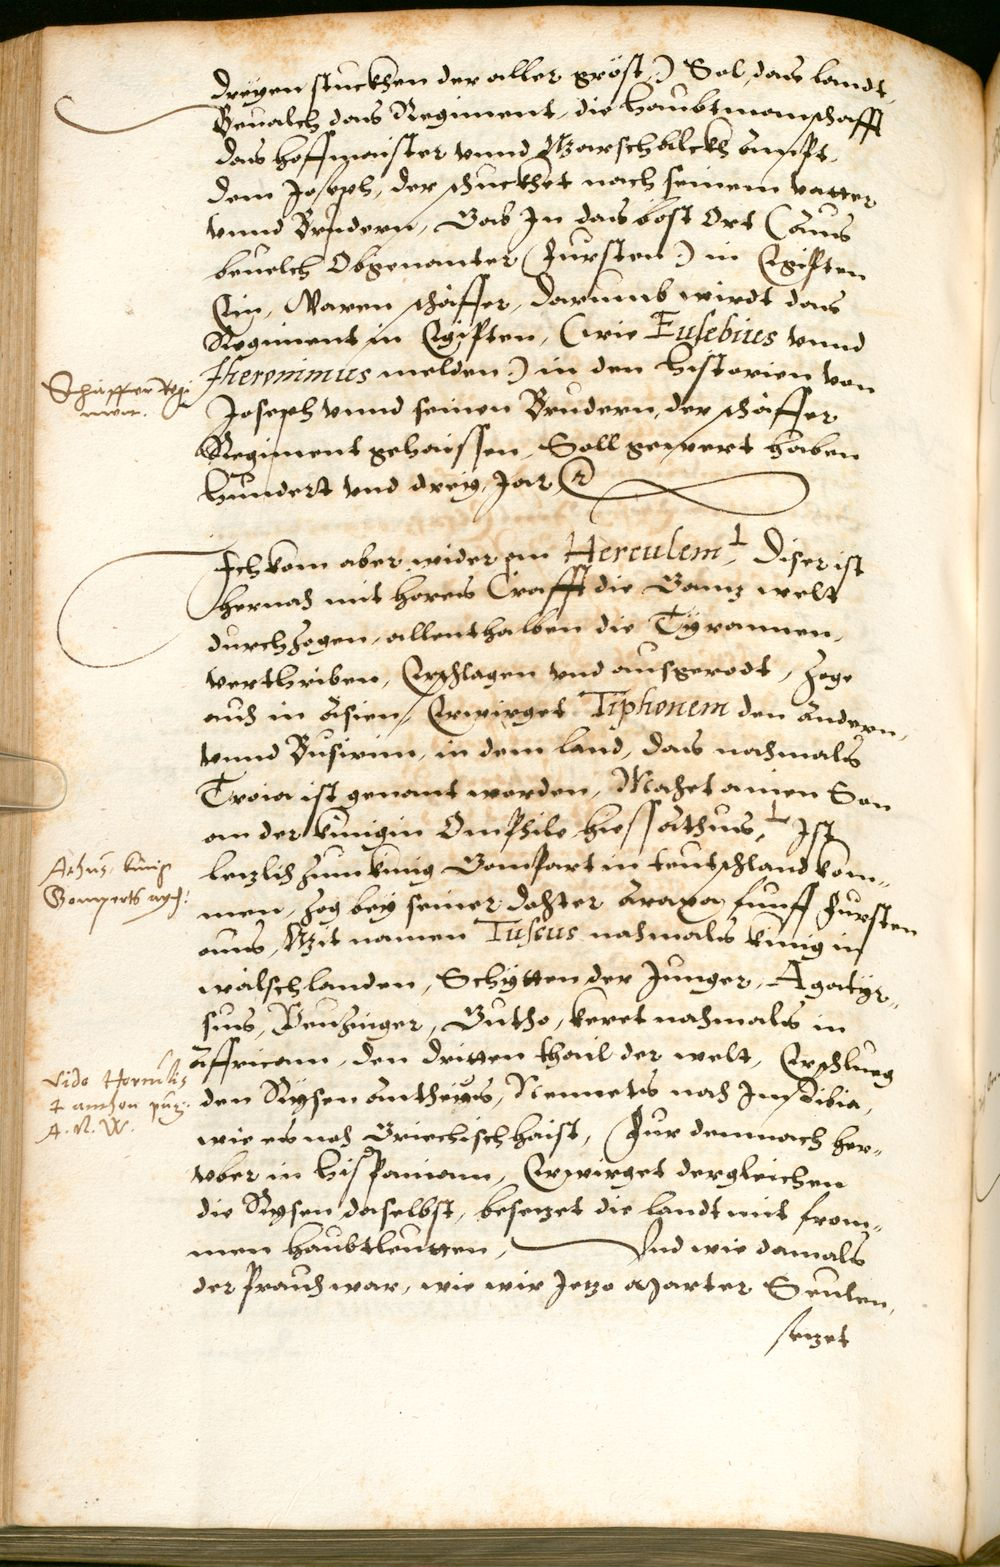 dreyen stuckhen der aller gröst :) Sol, das landt,
Beualch das Regiment, die haubtmanschafft
das hoffmaister vnnd Marschalckh ampt,
dem Joseph, der schuckhet nach seinem vatter
vnnd Brudern, Gab In das böst Ort (aus
beuelch Obgenanter Fursten :) in Egipten
Ein, Waren schäffer, darumb wirdt das
Regiment in Egipten, (wie Eusebius vnnd
Hieronimus melden :) in den historien von
Joseph vnnd seinen Brudern, der schäffer
Regiment gehaissen, Soll gewert haben
hundert vnd dreÿ Jar
Schäffer Regi
ment.
Ich kom aber wider an Herculem, Diser ist
hernach mit hores Crafft die Gantz welt
durchzogen, allenthalben die Tÿrannen,
verthriben, Erschlagen vnd ausgerodt, zoge
auch in Asien, Erwirget Tiphonem den andern,
vnnd Busirim, in dem land, das nachmals
Troia ist genant worden, Machet ainen Son
an der künigin Omphile, hiess Athus, Ist
letzlich zum künig Gompart in teutschland kom-
men, zog beÿ seiner dochter Araxa funff Fursten
auus, Mit namen Tuscus nachmals künig in
wälschlanden, Schÿtten der Junger, Agatÿr-
sus, Peuzinger, Gutho, keret nachmals in
Affricam, den dritten thail der welt, Erschlueg
den Rÿsen Antheus, Nennets nach Im Libia,
wie es noch Griechisch haist, Fur demnach her-
vber in hispaniam, Erwirget dergleichen
die Rÿsen daselbst, besetzet die landt mit from-
men haubtleutten, Vnd wie damals
der prauch war, wie wir Jetzo Marter Seulen,
setzet
Athus, künig
Gomperts
vide Herculis
A. N. W.